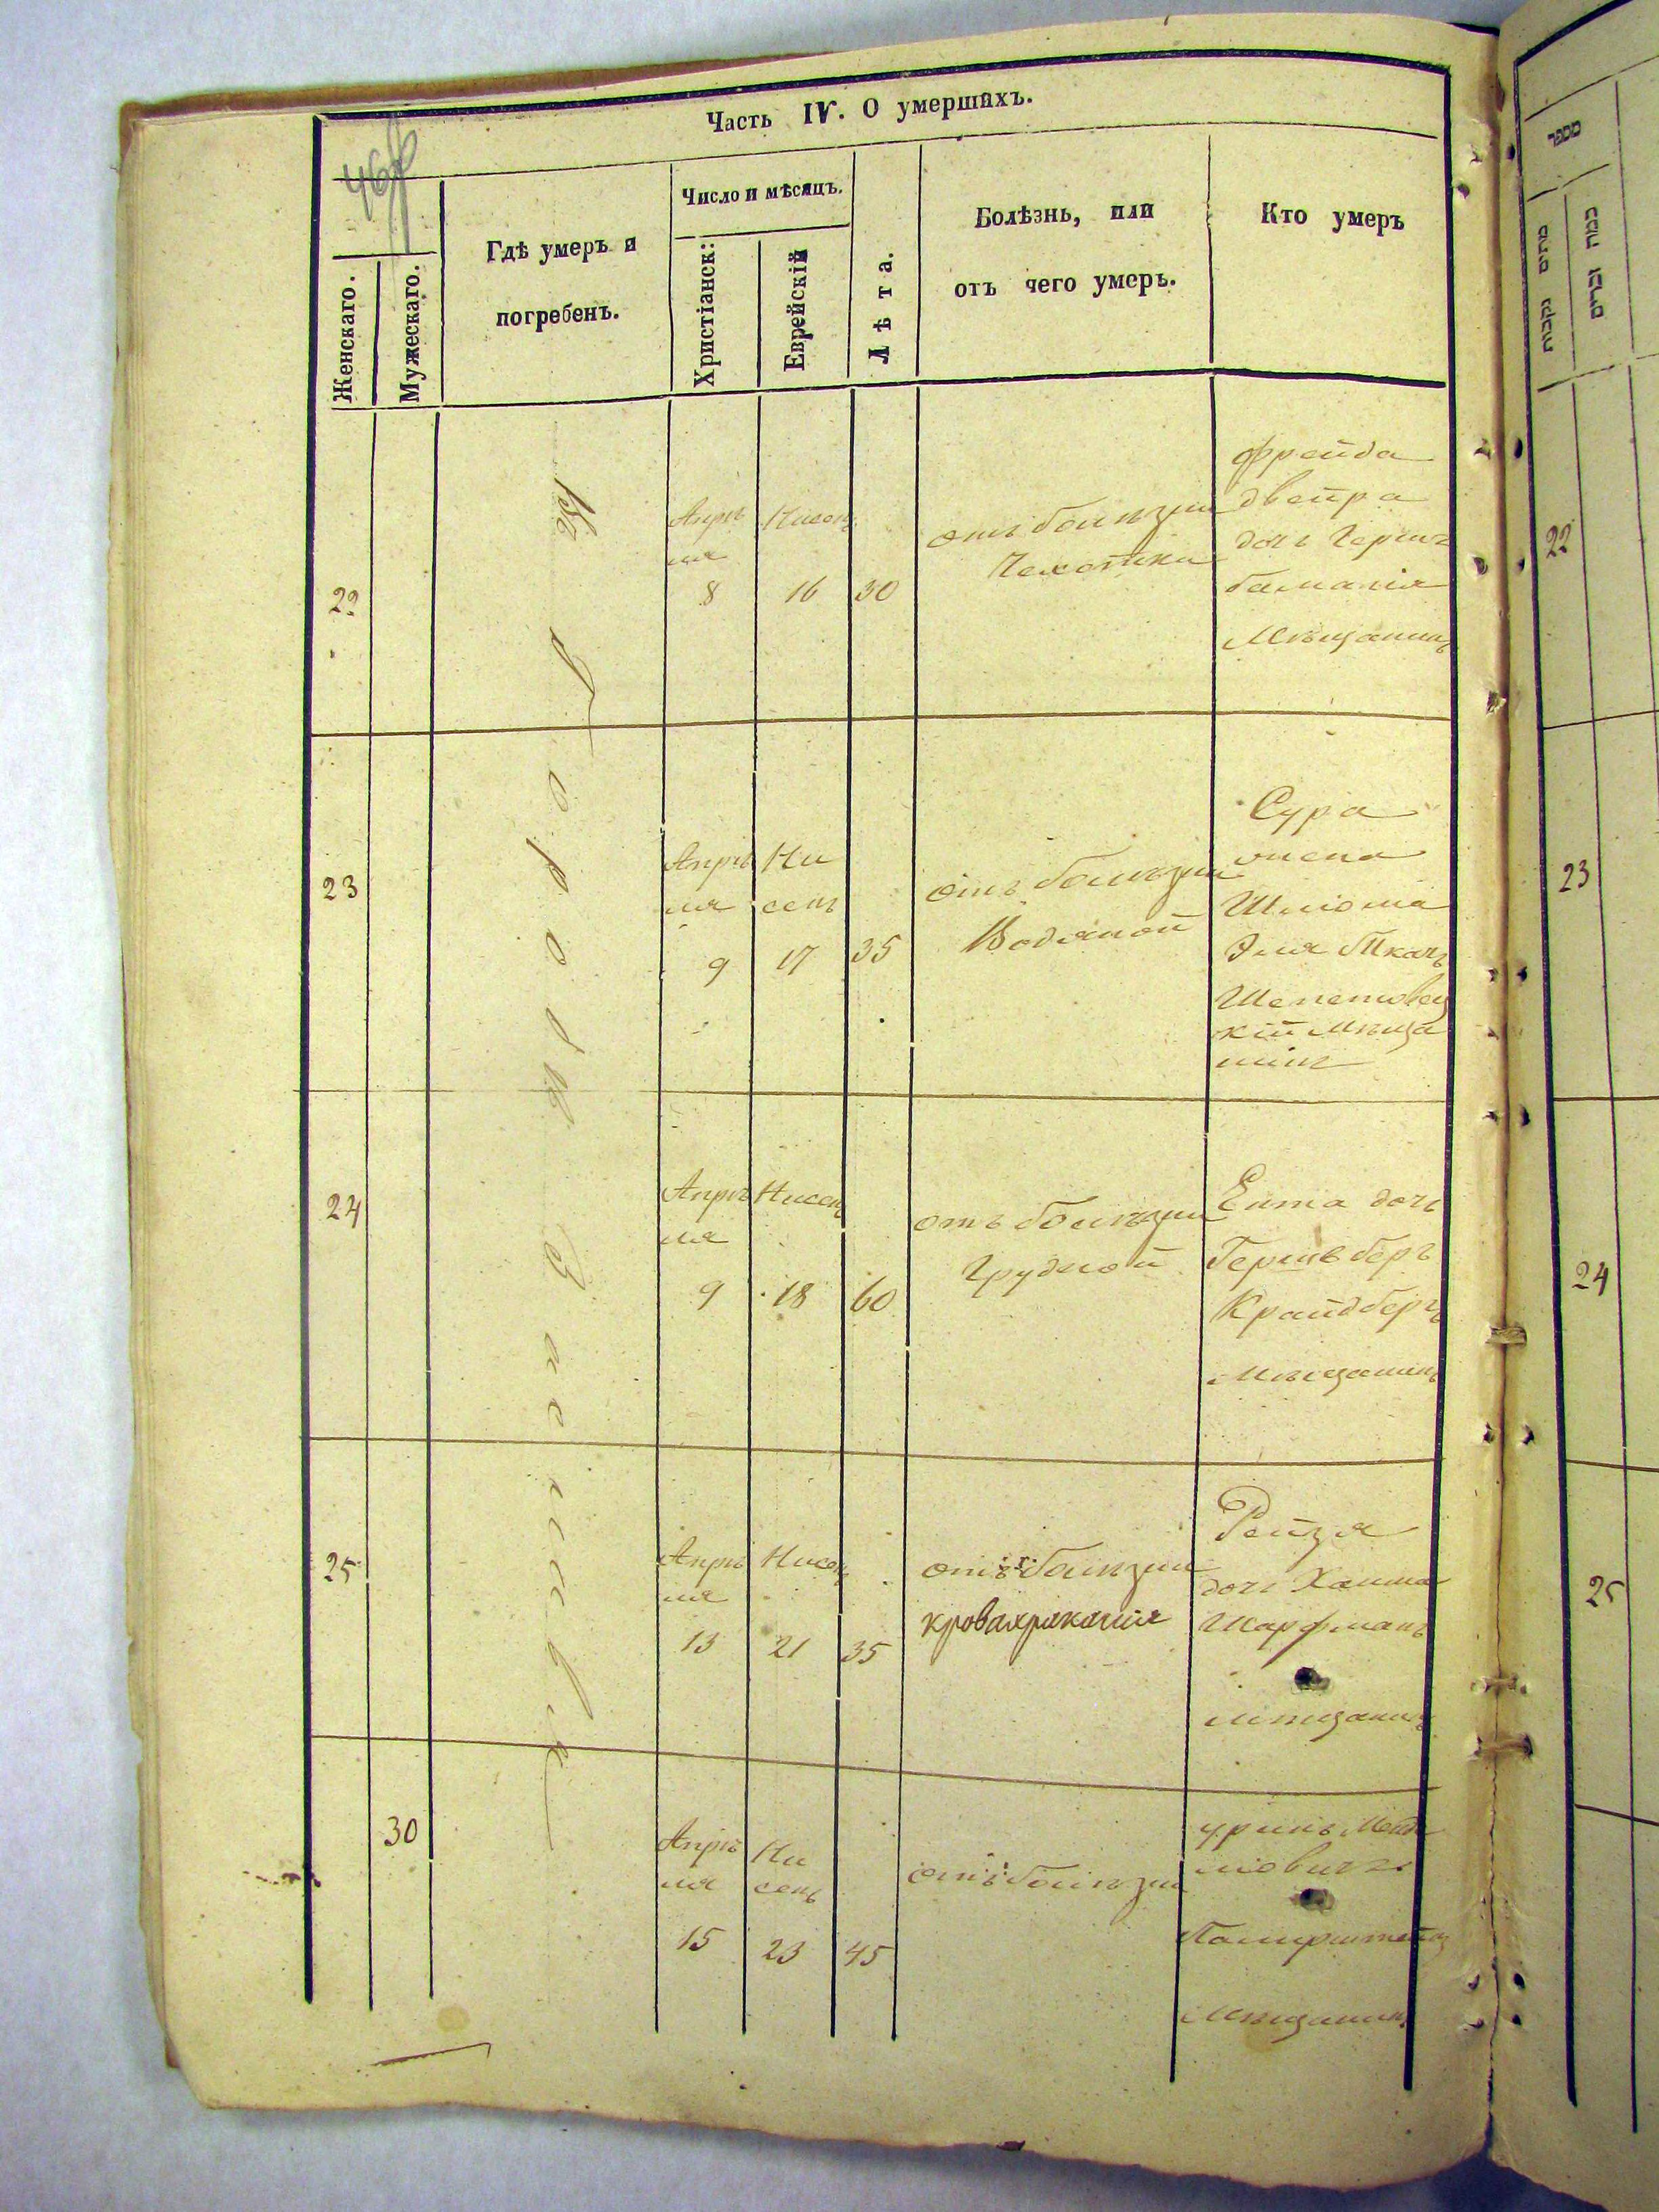 Часть IV. О умершихъ.
46
Женскаго.
Мужескаго.
Гдѣ умеръ и
погребенъ.
Число и мѣсяцъ.
Христіанск:
Еврейскій
Лѣта.
Болѣзнь, или
отъ чего умеръ.
Кто умеръ
Въ Городѣ Заславѣ
22
Апрѣ
ля
8
Нисенъ
16
30
отъ болѣзни
Чехотки
Фрейда
двейра
дочь
Мѣщанинъ
23
Апрѣ
ля
9
Ни
сенъ
17
35
отъ болѣзни
Водяной
Сура
жена
Шліома
Эля Ткачъ
Шепетовец
кій мѣща
нинъ
24
Апрѣ
ля
9
Нисенъ
18
60
отъ болѣзни
Грудной
Ента дочь
Гершъ беръ
Крайдберъ
мѣщанинъ
25
Апрѣ
ля
13
Нисенъ
21
35
отъ болѣзни
кровахракания
Рейзя
дочь Хаима
Шарфманъ
мѣщанинъ
30
Апрѣ
ля
15
Ни
сенъ
23
45
отъ болѣзни
Мѣщанинъ
מספר
מתים נקבות
זכרים
22
23
24
25